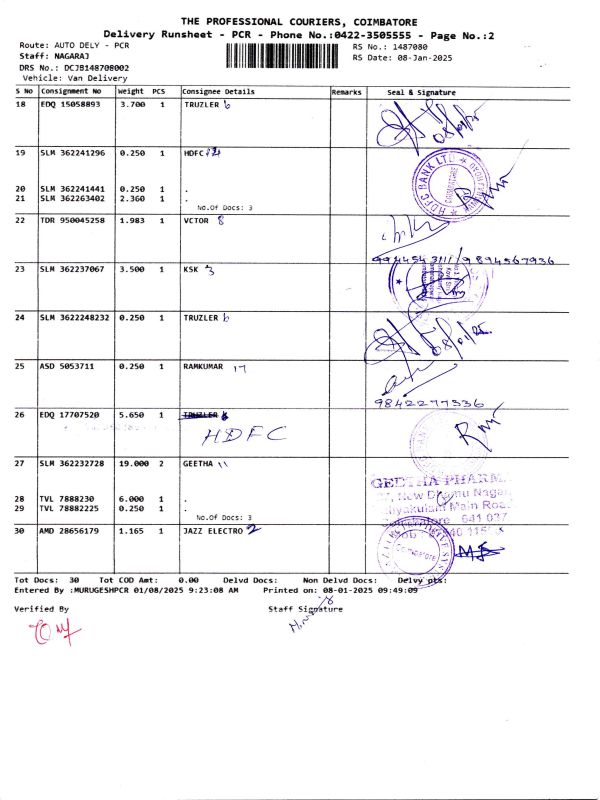 THE PROFESSIONAL COURIERS, COIMBATORE
Delivery Runsheet - PCR - Phone No.:0422-3505555 - Page No.:2
Route: AUTO DELY - PCR RS No.: 1487080
Staff: NAGARAJ RS Date: 08-Jan-2025
DRS No.: DCJB148708002
Vehicle: Van Delivery
S No Consignment No Weight PCS Consignee Details Remarks Seal & Signature
18 EDQ 15058893 3.700 1 TRUZLER 6
08/01/25
19 SLM 362241296 0.250 1 HDFC 12
HDFC BANK LTD
COIMBATORE
20 SLM 362241441 0.250 1 .
21 SLM 362263402 2.360 1 .
No.Of Docs: 3
22 TDR 950045258 1.983 1 VCTOR 8
9944543111/9894567936
23 SLM 362237067 3.500 1 KSK 3
24 SLM 3622248232 0.250 1 TRUZLER 6
08/01/25
25 ASD 5053711 0.250 1 RAMKUMAR 17
9842277336
26 EDQ 17707520 5.650 1 TRUZLER
HDFC
27 SLM 362232728 19.000 2 GEETHA 11
GEETHA PHARM
New Dhanu Nagar
Main Road
Coimbatore 641 037
28 TVL 7888230 6.000 1 .
29 TVL 78882225 0.250 1 .
No.Of Docs: 3
30 AMD 28656179 1.165 1 JAZZ ELECTRO 2
Coimbatore
Tot Docs: 30 Tot COD Amt: 0.00 Delvd Docs: Non Delvd Docs: Delvy pts:
Entered By :MURUGESHPCR 01/08/2025 9:23:08 AM Printed on: 08-01-2025 09:49:09
Verified By Staff Signature